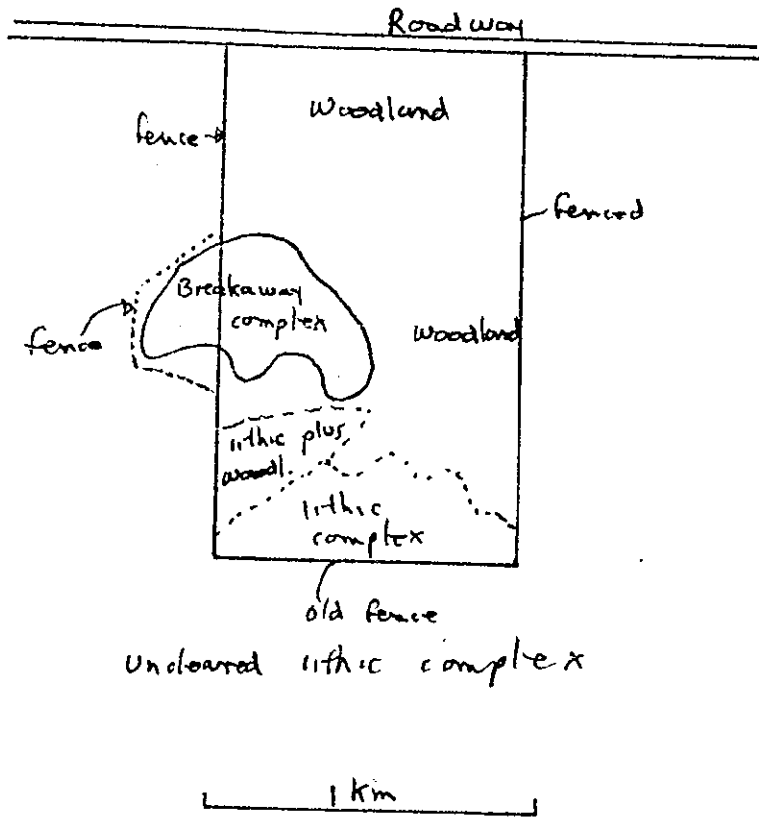 Roadway
Woodland
fence
fenced
Breakaway
complex
fence
Woodland
lithic plus
woodl.
lithic
complex
old fence
Uncleared lithic complex
1 Km